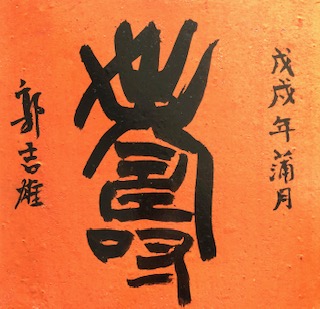 戊戌年蒲月
壽
郭吉雄